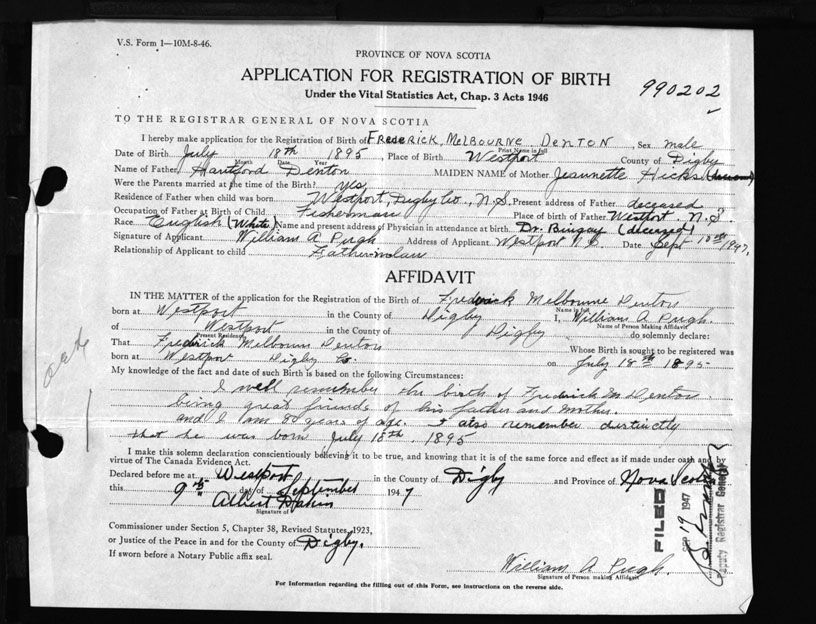 V.S. Form 1—10M-8-46.
PROVINCE OF NOVA SCOTIA
APPLICATION FOR REGISTRATION OF BIRTH
Under the Vital Statistics Act, Chap. 3 Acts 1946
990202
TO THE REGISTRAR GENERAL OF NOVA SCOTIA
I hereby make application for the Registration of Birth of Frederick, Melbourne Denton, Sex male
Print Name in full
Date of Birth July 18th 1895, Place of Birth Westport County of Digby
Month Date Year
Name of Father Hartford Denton MAIDEN NAME of Mother Jeannette Hicks
Were the Parents married at the time of the Birth? Yes
Residence of Father when child was born Westport, Digby Co., N.S. Present address of Father deceased
Occupation of Father at Birth of Child Fisherman Place of birth of Father Westport. N.S.
Race English (White) Name and present address of Physician in attendance at birth Dr. Bingay (deceased)
Signature of Applicant William A Pugh Address of Applicant Westport N.S. Date Sept 10th 1947.
Relationship of Applicant to child Father-in-law
AFFIDAVIT
IN THE MATTER of the application for the Registration of the Birth of Frederick Melbourne Denton
Name in full
born at Westport in the County of Digby I, William A. Pugh.
Name of Person Making Affidavit
of Westport in the County of Digby do solemnly declare:
Present Residence
That Frederick Melbourn Denton Whose Birth is sought to be registered was
born at Westport Digby Co. on July 18th 1895
My knowledge of the fact and date of such Birth is based on the following Circumstances:
I well remember the birth of Fredrick M Denton
being great friends of his father and mother.
and I am 80 years of age. I also remember distinctly
that he was born July 18th, 1895
I make this solemn declaration conscientiously believing it to be true, and knowing that it is of the same force and effect as if made under oath and by
virtue of The Canada Evidence Act.
Declared before me at Westport in the County of Digby and Province of Nova Scotia
this 9th day of September 1947
Albert Dakin
Signature of
Commissioner under Section 5, Chapter 38, Revised Statutes, 1923,
or Justice of the Peace in and for the County of Digby.
If sworn before a Notary Public affix seal.
William A Pugh.
Signature of Person making Affidavit
For Information regarding the filling out of this Form, see instructions on the reverse side.
FILED
SEP 19 1947
Deputy Registrar General